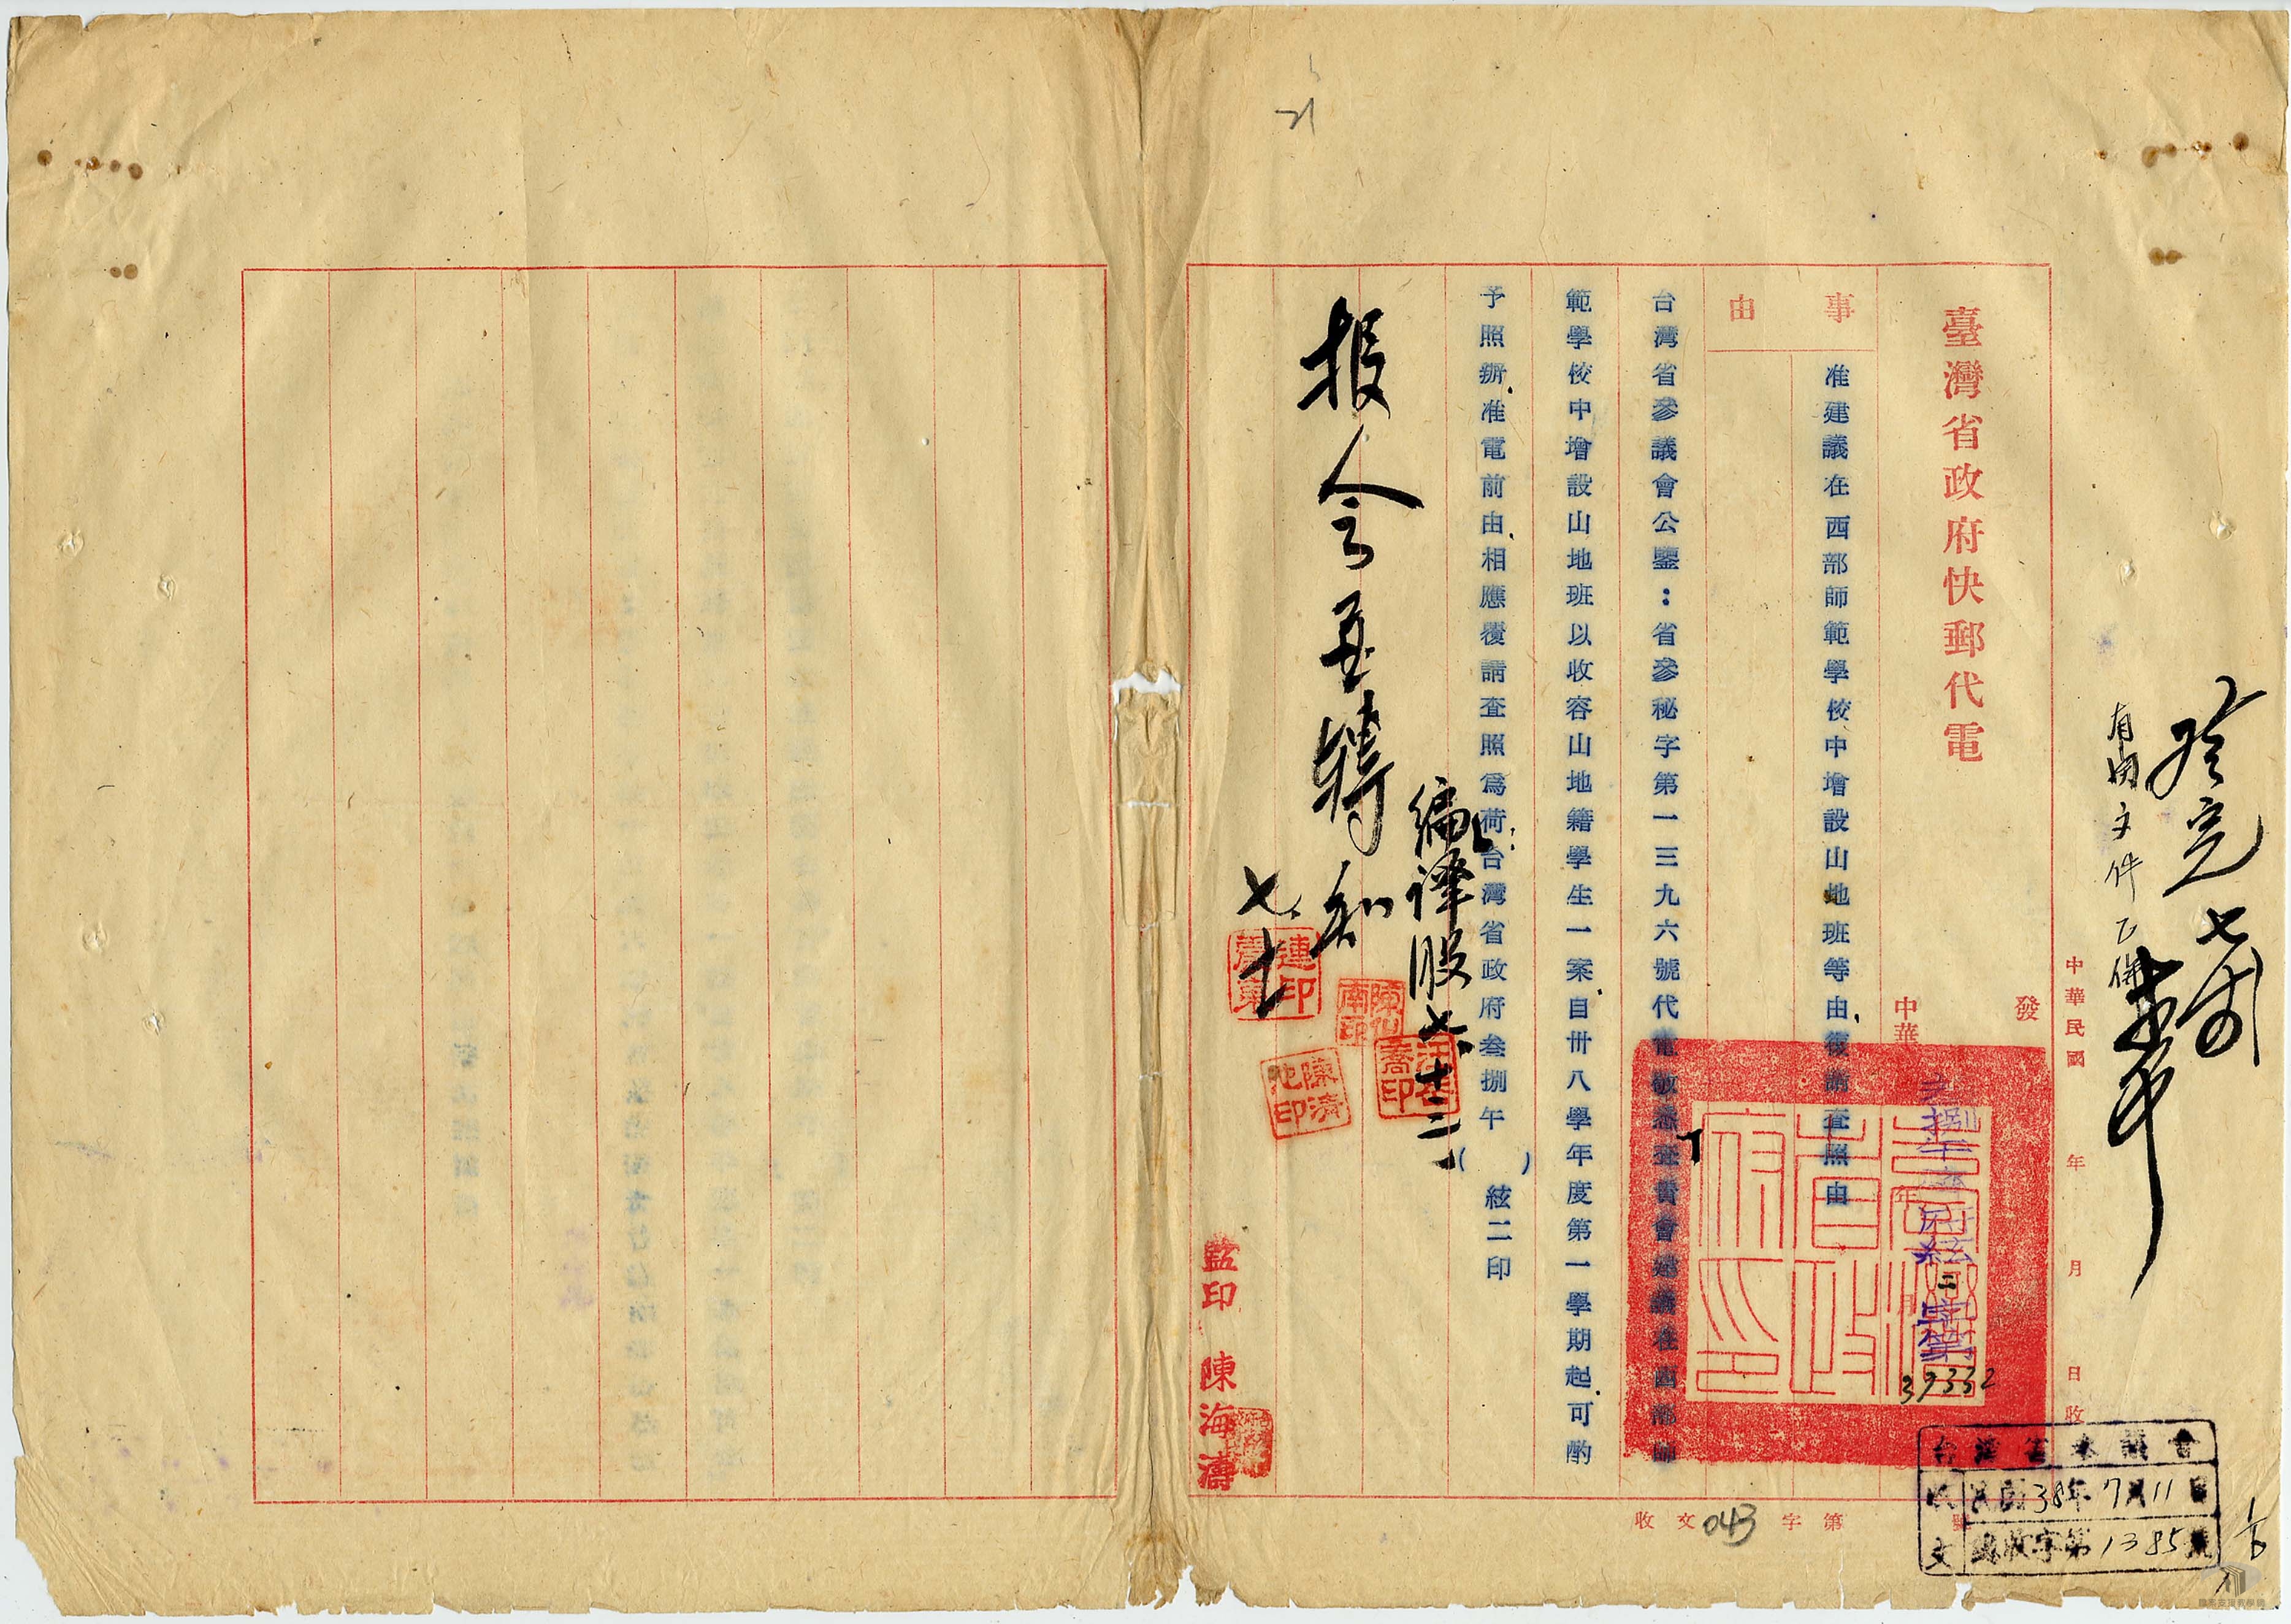 臺灣省政府快郵代電
事由
准建議在西部師範學校中增設山地班等由復請查照由
台灣省參議會公鑒：省參秘字第一三九六號代電敬悉查貴會建議在西部師
範學校中增設山地班以收容山地籍學生一案自卅八學年度第一學期起可酌
予照辦准電前由相應覆請查照為荷台灣省政府叁捌午（　）絃二印
編譯股
七、十三
報會並轉知
監印 陳海濤
發
中華 年 月
府絃二字第
39332
中華民國 年 月 日收
有関文件乙併
收文 043 字第 號
台灣省參議會
收文
民國38年7月11日
總收字第1385號